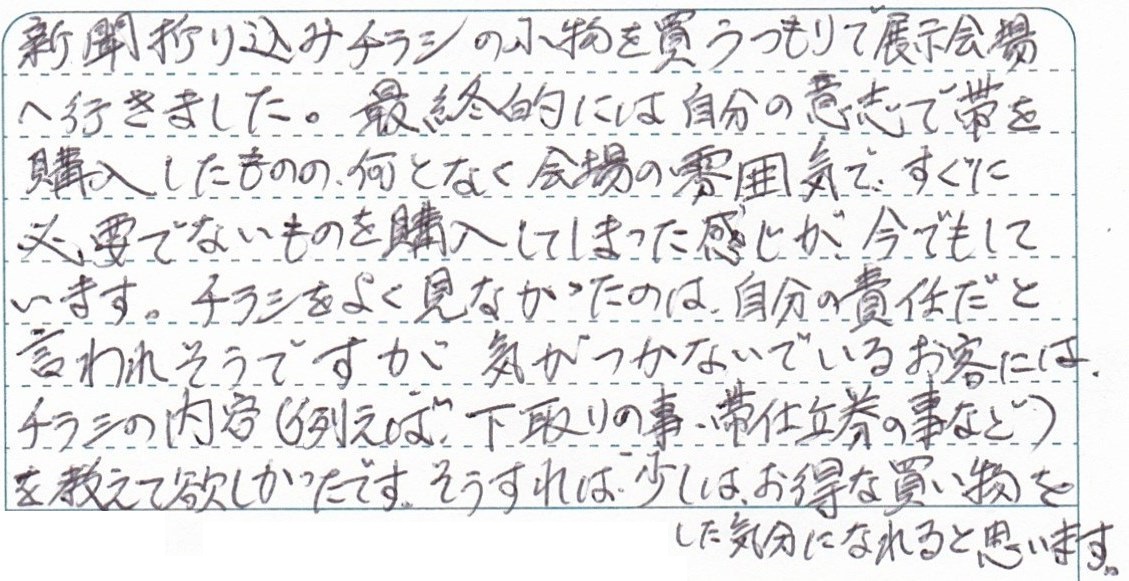 新聞折り込みチラシの小物を買うつもりで展示会場
へ行きました。最終的には自分の意志で帯を
購入したものの、何となく会場の雰囲気で、すぐに
必要でないものを購入してしまった感じが、今でもして
います。チラシをよく見なかったのは、自分の責任だと
言われそうですが、気がつかないでいるお客には、
チラシの内容（例えば、下取りの事、帯仕立券の事など）
を教えて欲しかったです。そうすれば、少しは、お得な買い物を
した気分になれると思います。